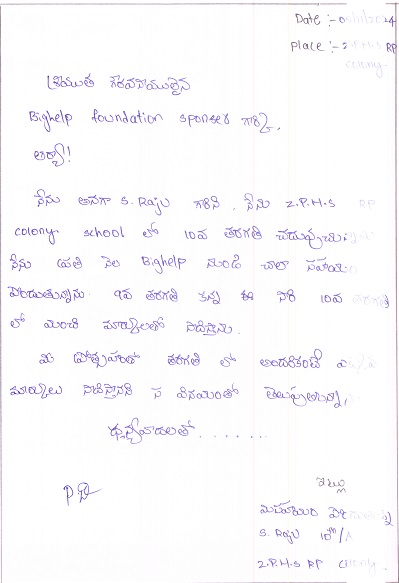 Date :- 05/11/2024
Place :- Z.P.H.S RP
colony.
శ్రీయుత గౌరవనీయులైన
Bighelp foundation sponser గార్కి,
ఆర్యా!
నేను అనగా S. Raju గారిని. నేను Z.P.H.S RP
colony school లో 10వ తరగతి చదువుచు
నేను ప్రతి నెల Bighelp నుండి చాలా సహాయం
పొందుతున్నాను. 9వ తరగతి కన్న ఈ సారి 10వ తరగతి
లో మంచి మార్కులతో సాధిస్తాను.
మీ ప్రోత్సాహంతో తరగతి లో అందరికంటే
మార్కులు సాధిస్తానని స వినయంతో తెలుపుతున్నా,
ధన్యవాదాలతో.......
ఇట్లు
మీ సహాయం
S. Raju 10th/A
Z.P.H.S RP colony.